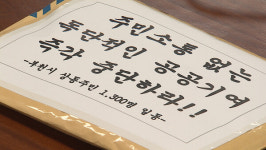 주민소통 없는
독단적인 공공기여
즉각 중단하라!!
-부천시 상동주민 1,300명 일동-